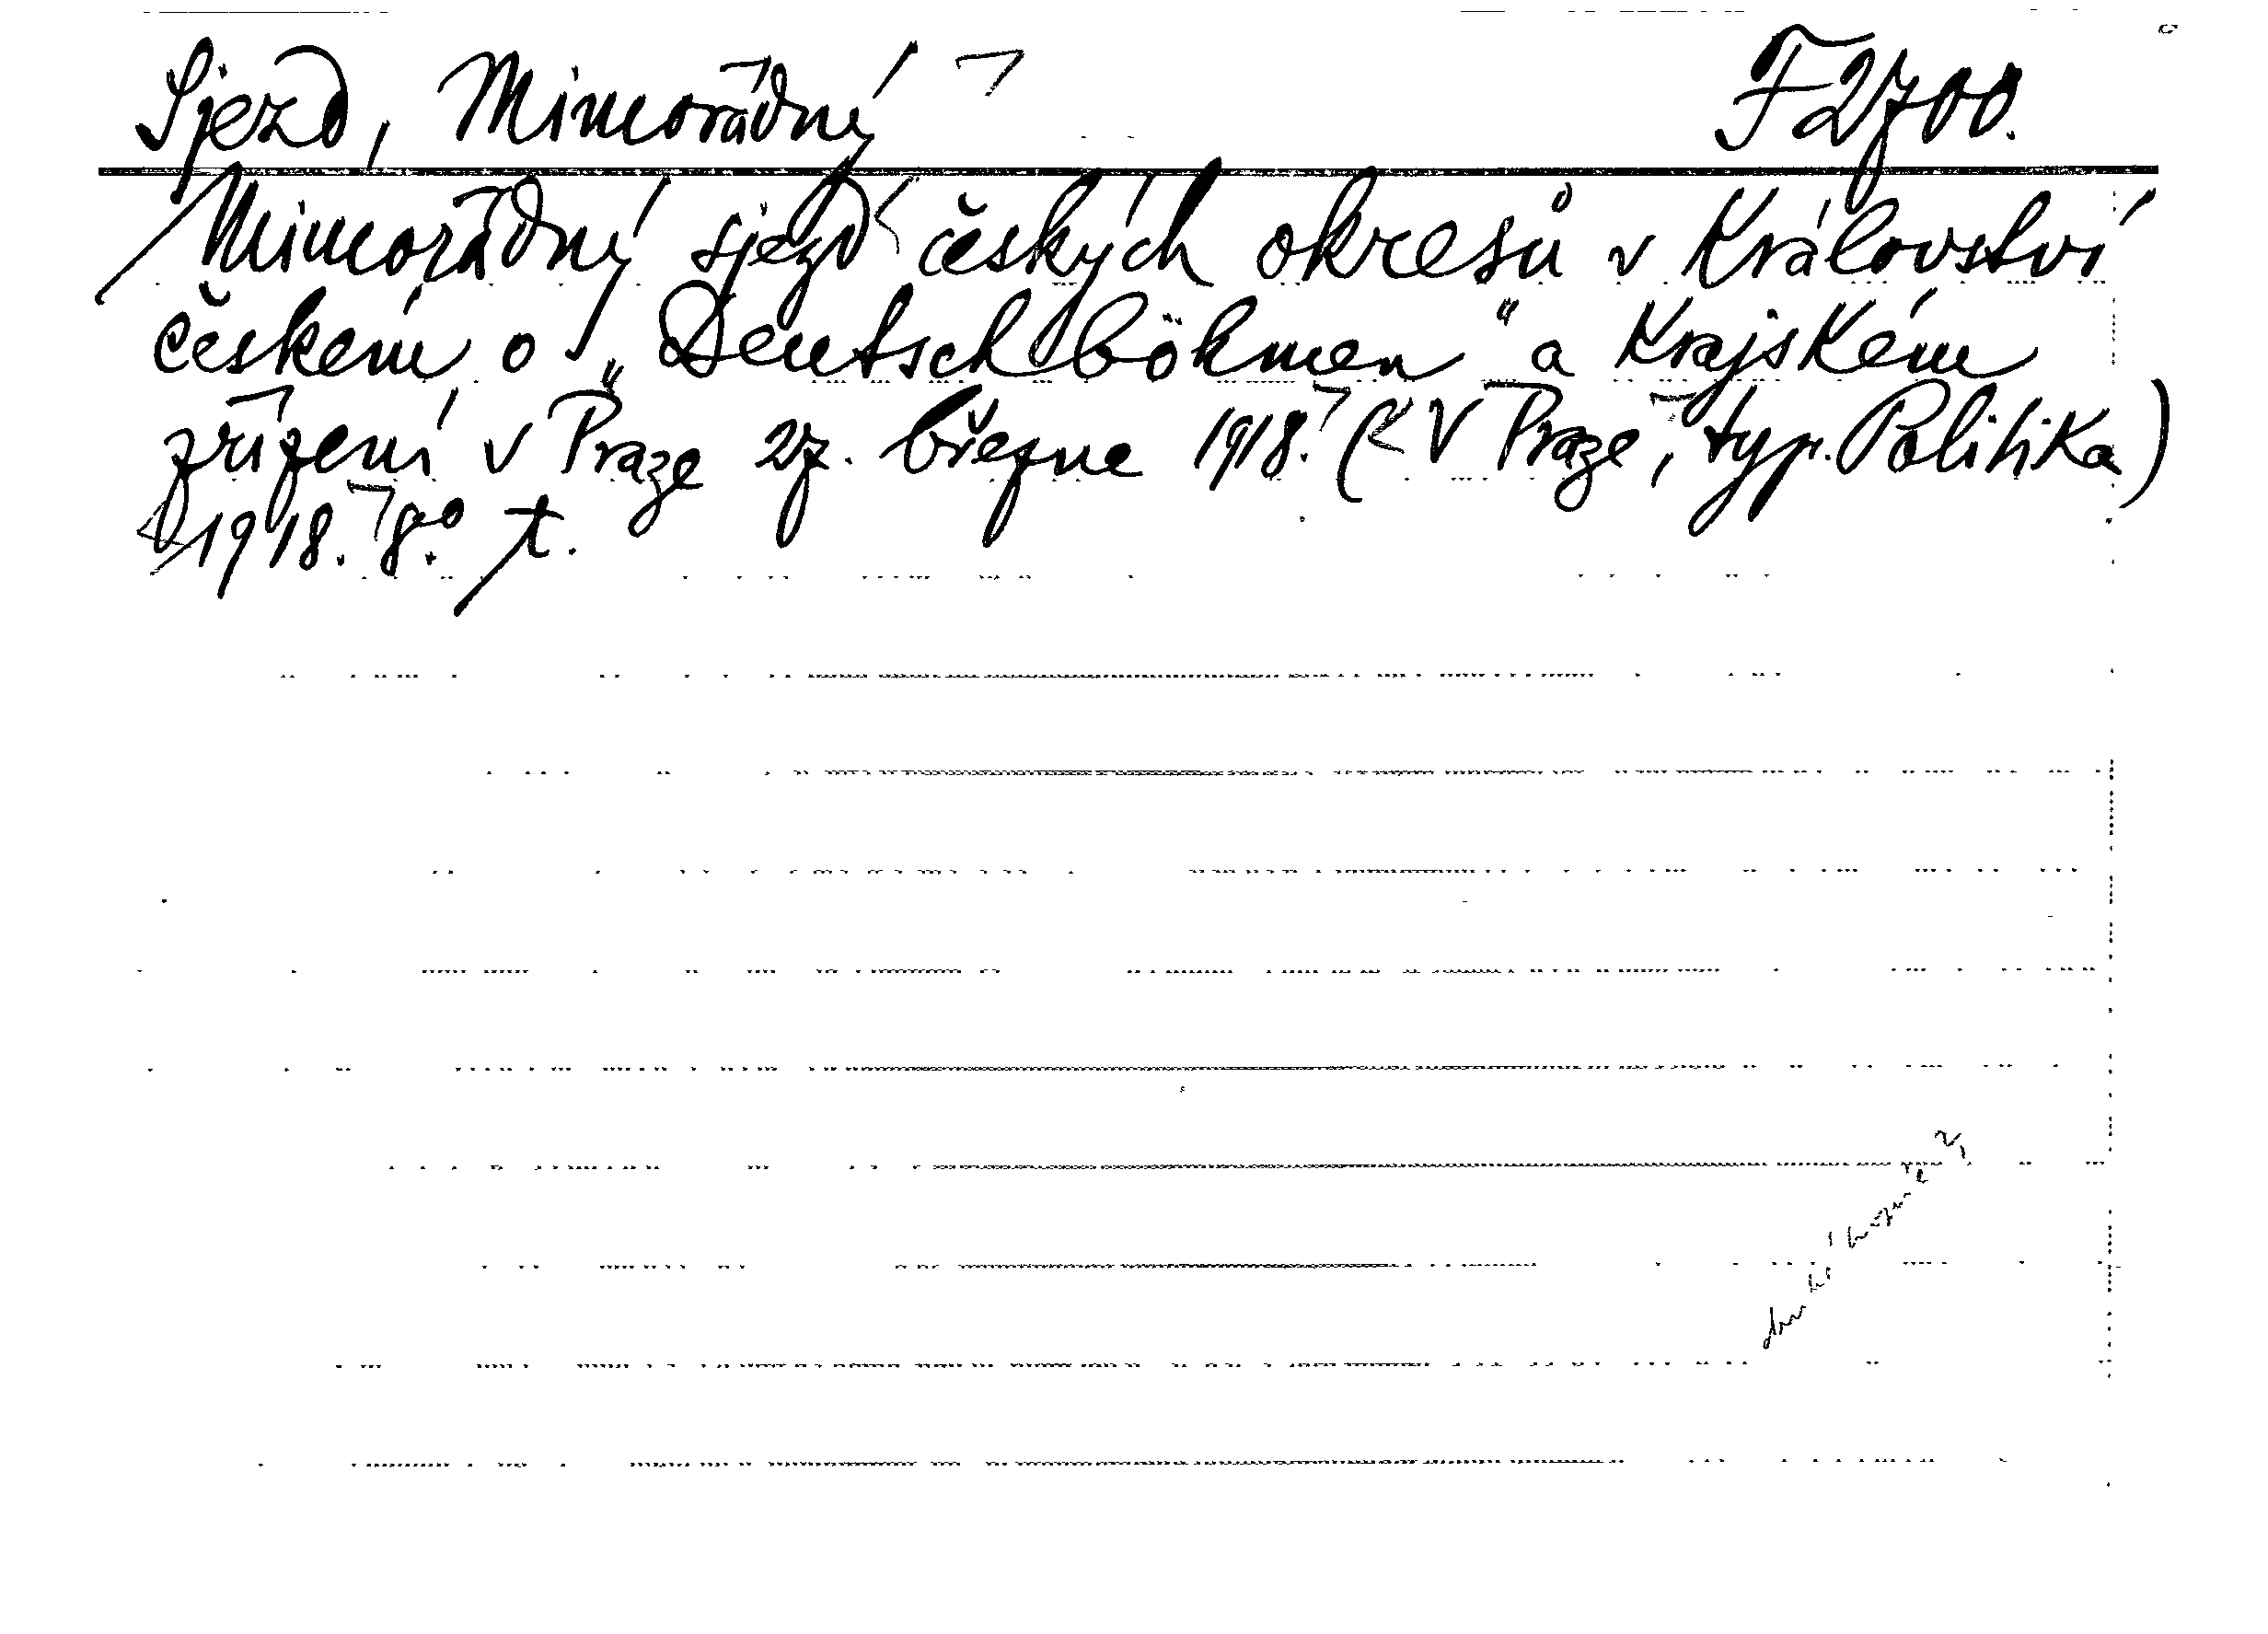 Sjezd, Mimořádný F 2700.
Mimořádný sjezd českých okresů v Království
českém o „Deutschböhmen“ a Krajském
zřízení v Praze 27. března 1918. (V Praze, typ. Politika)
1918. 8° t.